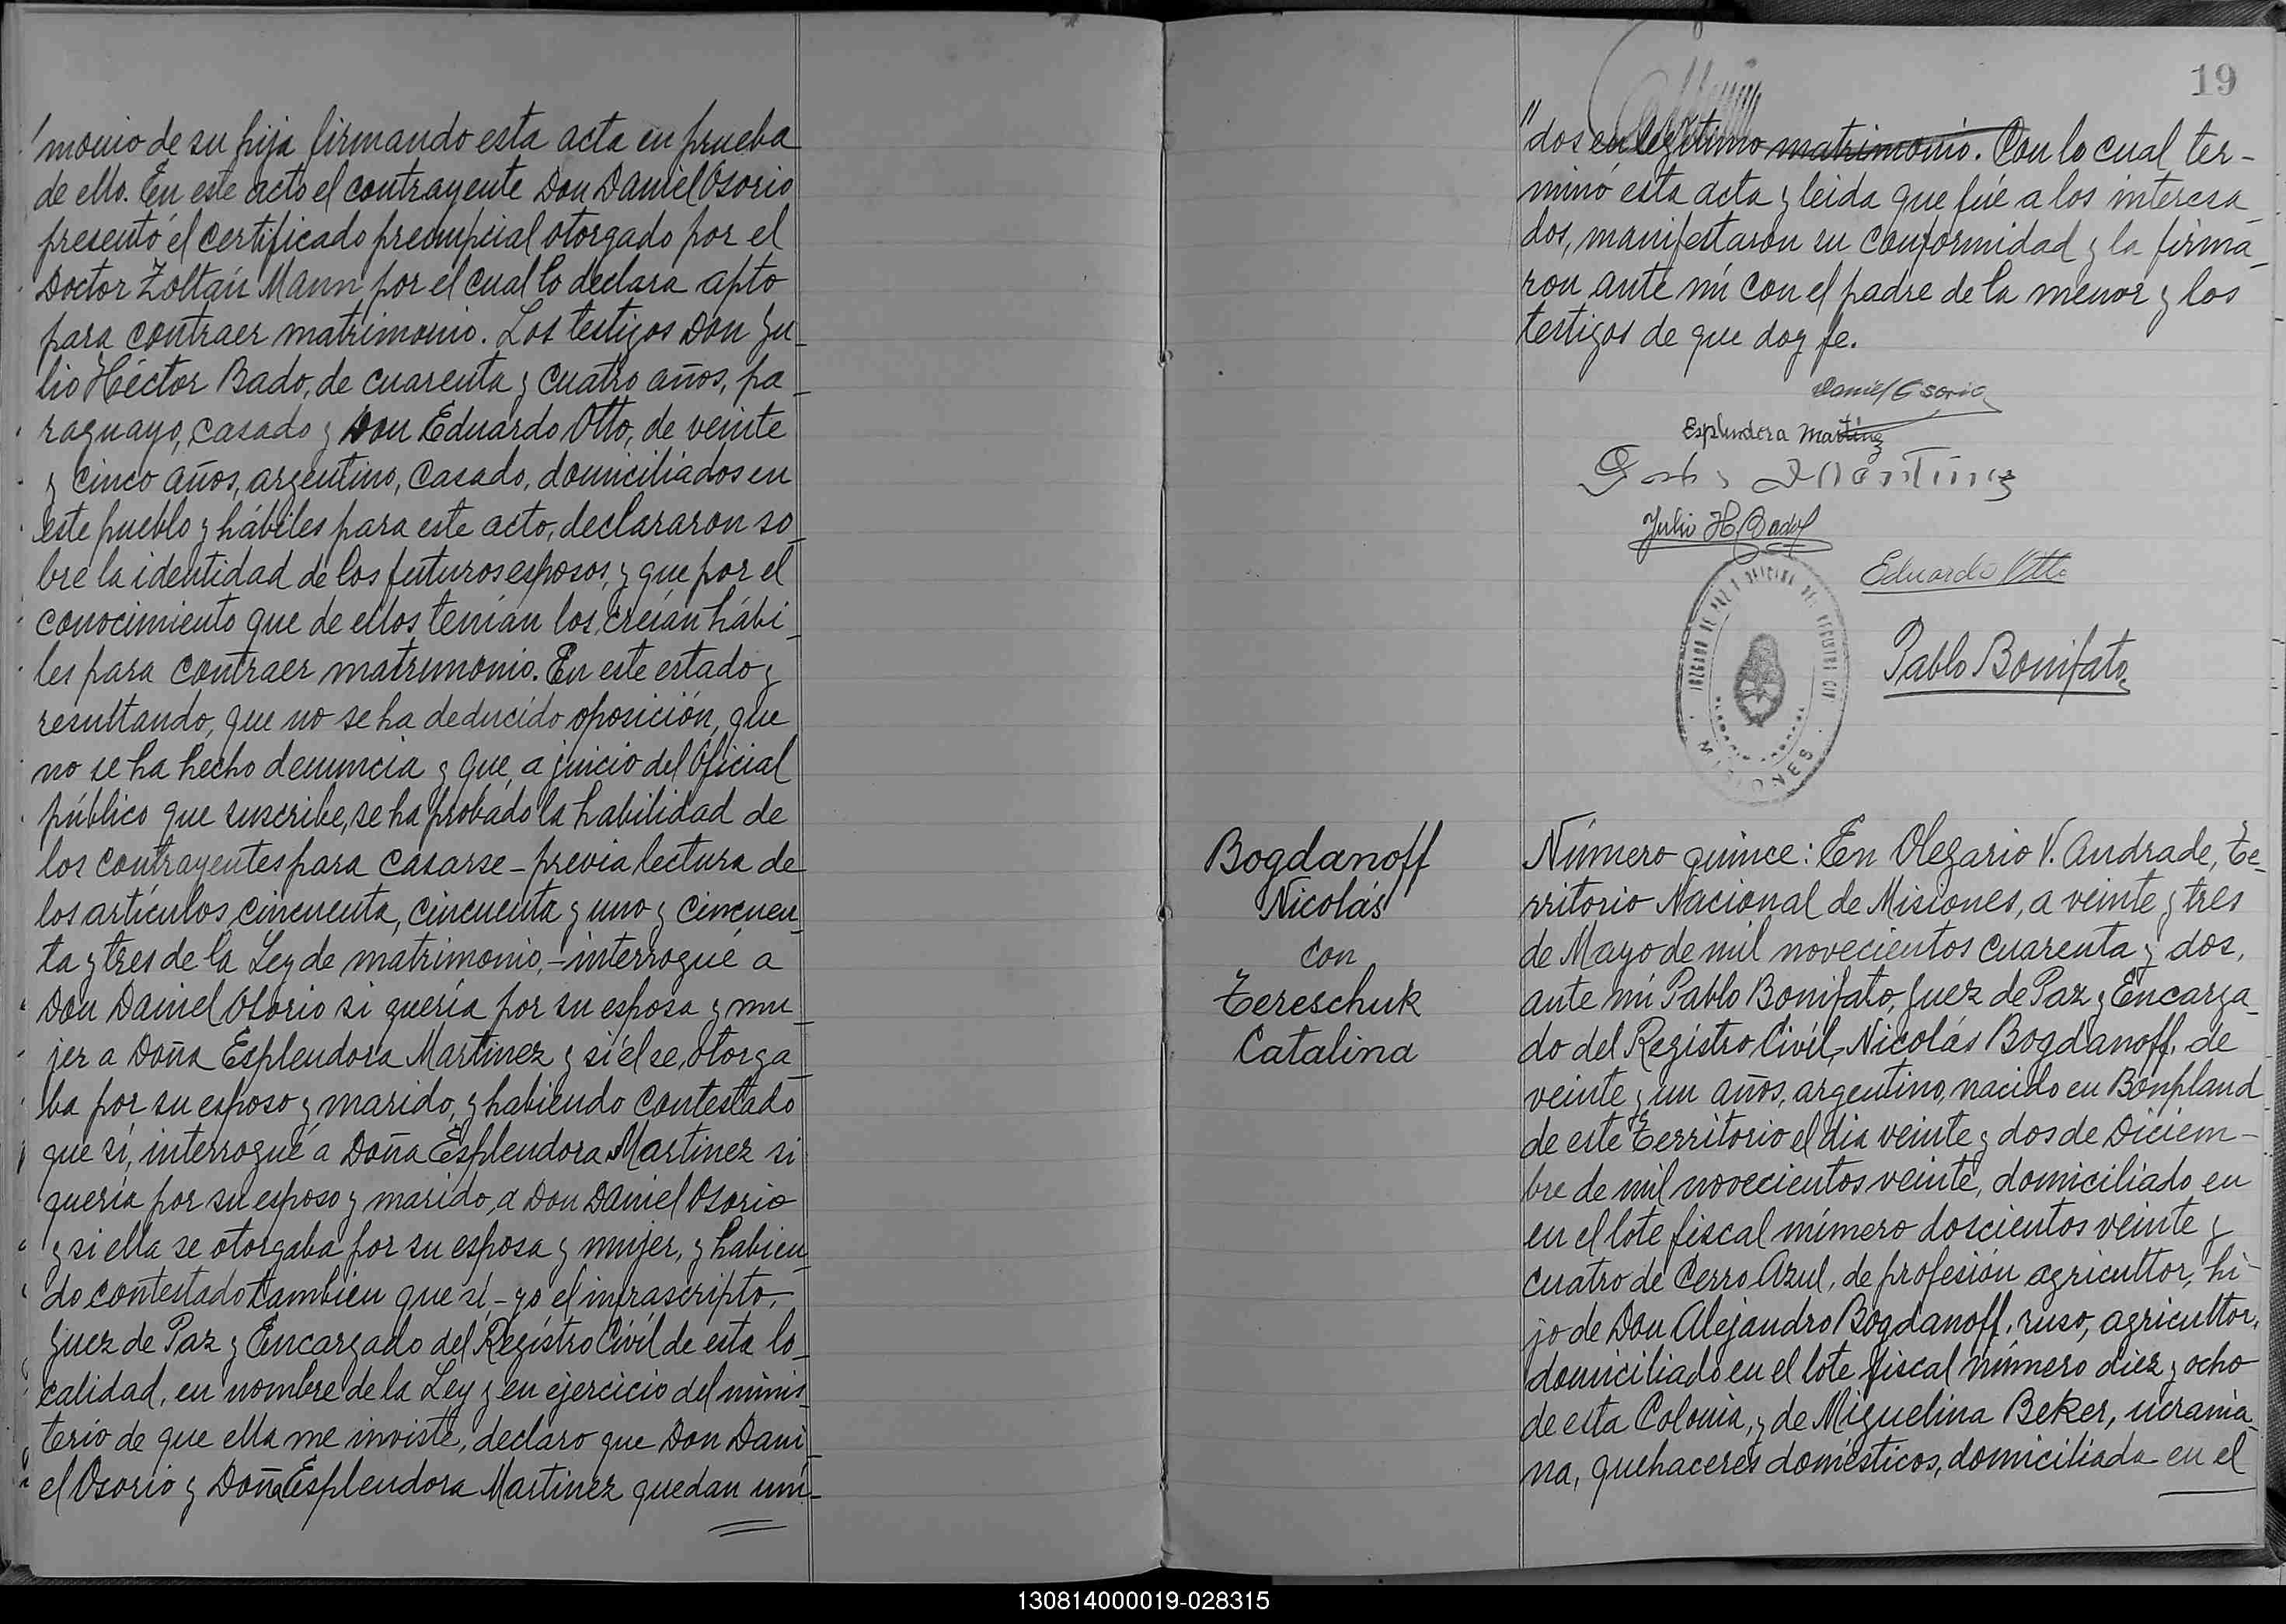 monio de su hija firmando esta acta en prueba
de ello. En este acto el contrayente Don Daniel Osorio
presentó el certificado prenupcial otorgado por el
Doctor Zoltán Mann por el cual lo declara apto
para contraer matrimonio. Los testigos Don Ju-
lio Héctor Bado, de cuarenta y cuatro años, pa-
raguayo, casado y Don Eduardo Otto, de veinte
y cinco años, argentino, casado, domiciliados en
este pueblo y hábiles para este acto, declararon so-
bre la identidad de los futuros esposos, y que por el
conocimiento que de ellos tenían los creían hábi-
les para contraer matrimonio. En este estado y
resultando, que no se ha deducido oposición, que
no se ha hecho denuncia y que, a juicio del Oficial
público que suscribe, se ha probado la habilidad de
los contrayentes para casarse - previa lectura de
los artículos cincuenta, cincuenta y uno y cincuen-
ta y tres de la Ley de matrimonio, - interrogué a
Don Daniel Osorio si quería por su esposa y mu-
jer a Doña Esplendora Martinez y si él se otorga-
ba por su esposo y marido, y habiendo contestado
que sí, interrogué a Doña Esplendora Martinez si
quería por su esposo y marido, a Don Daniel Osorio
y si ella se otorgaba por su esposa y mujer, y habien-
do contestado tambien que sí, - yo el infrascripto,
Juez de Paz y Encargado del Registro Civil de esta lo-
calidad, en nombre de la Ley y en ejercicio del minis-
terio de que ella me inviste, declaro que Don Dani-
el Osorio y Doña Esplendora Martinez quedan uni-
19
"dos en legítimo matrimonio. Con lo cual ter-
minó esta acta y leida que fué a los interesa-
dos, manifestaron su conformidad y la firma-
ron ante mí con el padre de la menor y los
testigos de que doy fe.
Daniel Osorio
Esplendora Martinez
Martinez
Julio H. Bado
Eduardo Otto
JUZGADO DE PAZ Y OFICINA DEL REGISTRO CIVIL
MISIONES
Pablo Bonifato
Bogdanoff
Nicolás
con
Tereschuk
Catalina
Número quince: En Olegario V. Andrade, Te-
rritorio Nacional de Misiones, a veinte y tres
de Mayo de mil novecientos cuarenta y dos,
ante mí Pablo Bonifato, Juez de Paz y Encarga-
do del Registro Civil, Nicolás Bogdanoff, de
veinte y un años, argentino, nacido en Bonpland
de este Territorio el día veinte y dos de Diciem-
bre de mil novecientos veinte, domiciliado en
en el lote fiscal número doscientos veinte y
cuatro de Cerro Azul, de profesión agricultor, hi-
jo de Don Alejandro Bogdanoff, ruso, agricultor,
domiciliado en el lote fiscal número diez y ocho
de esta Colonia, y de Miguelina Beker, ucrania-
na, quehaceres domésticos, domiciliada en el
130814000019-028315